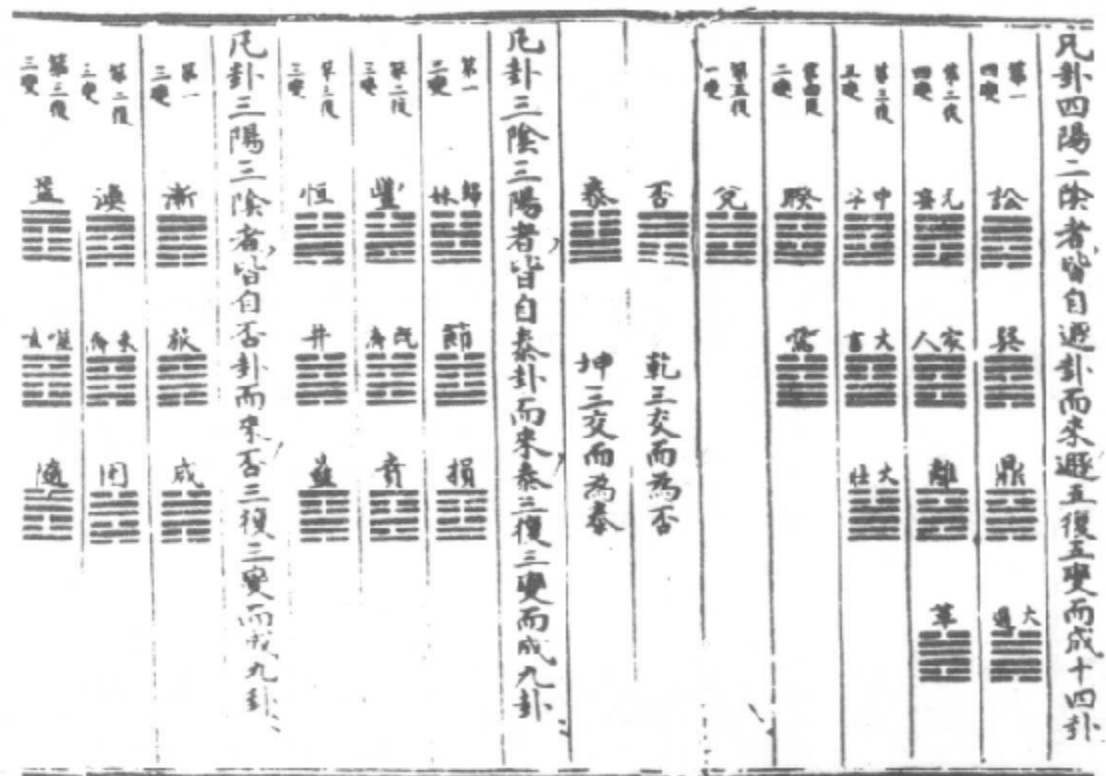 凡卦四陽二陰者皆自遯卦而來遯五復五變而成十四卦
第一
四變
訟
巽
鼎
大過
第二復
四變
无妄
家人
離
革
第三復
三變
中孚
大畜
大壯
第四復
二變
睽
需
第五復
一變
兌
否
乾三交而為否
泰
坤三交而為泰
凡卦三陰三陽者皆自泰卦而來泰三復三變而成九卦
第一
三變
歸妹
節
損
第二復
三變
豐
既濟
賁
第三復
三變
恒
井
蠱
凡卦三陽三陰者皆自否卦而來否三復三變而成九卦
第一
三變
漸
旅
咸
第二復
三變
渙
未濟
困
第三復
三變
益
噬嗑
隨